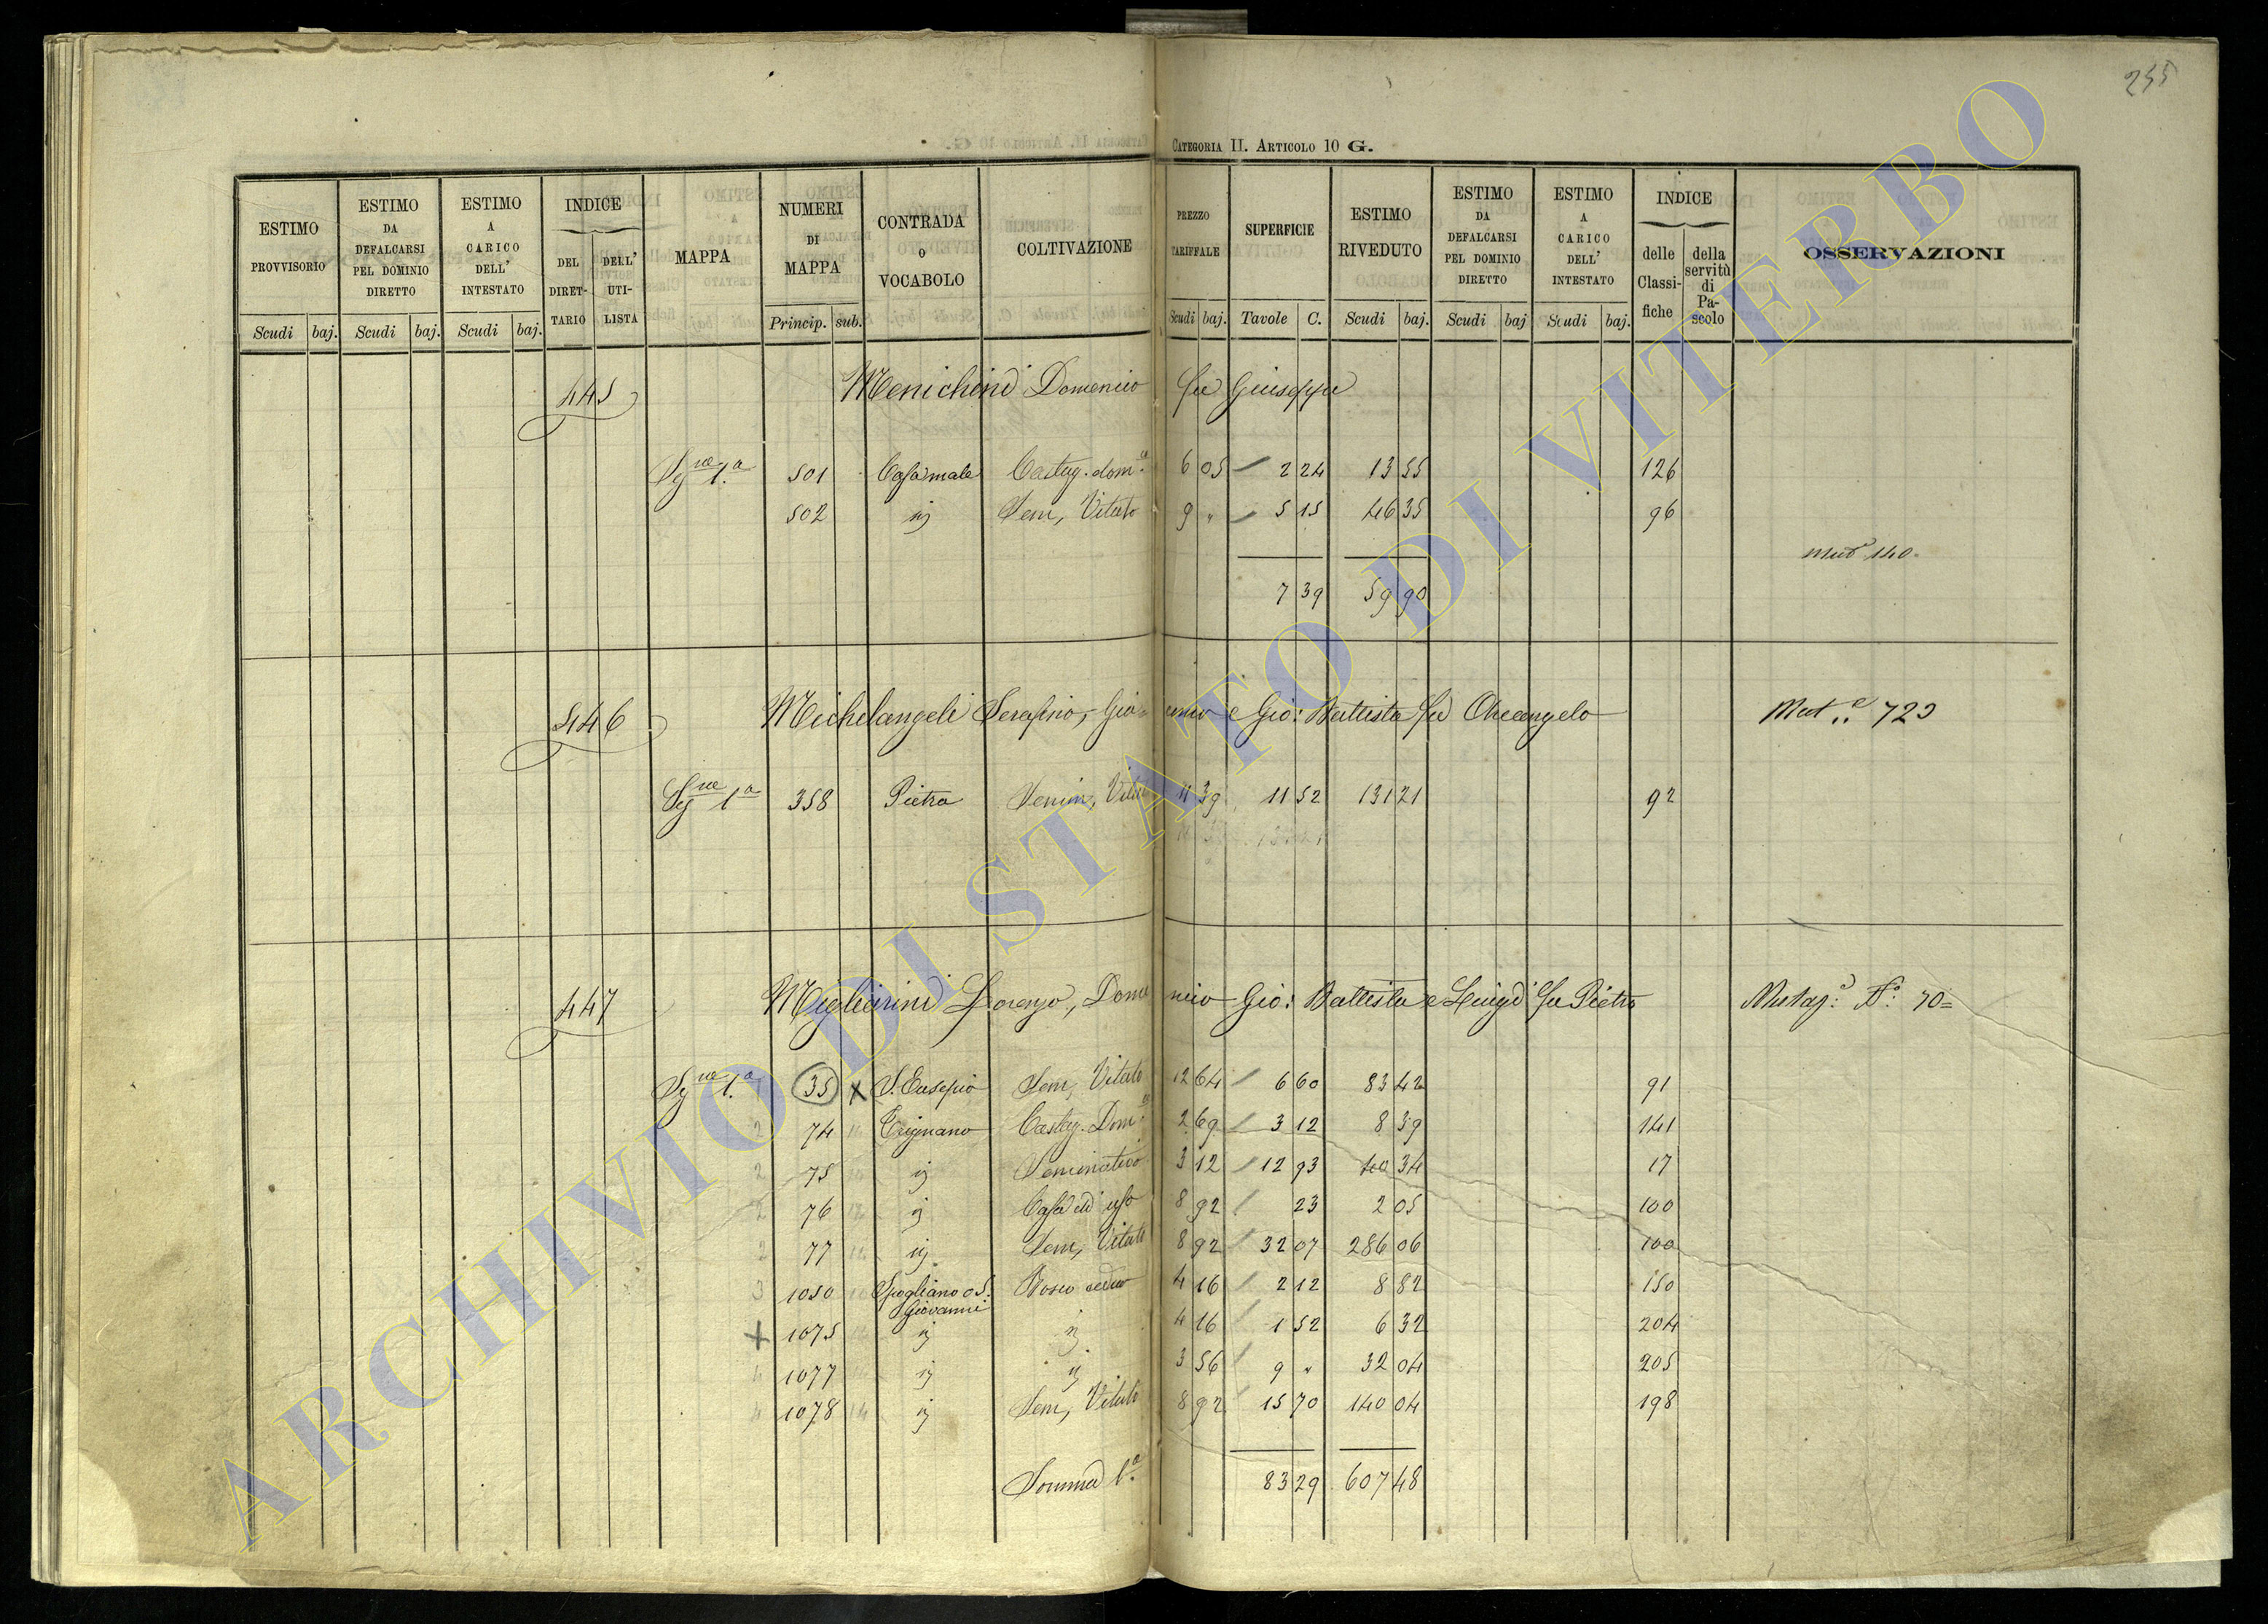 255
CATEGORIA II. ARTICOLO 10 G.
ESTIMO PROVVISORIO Scudi baj.
ESTIMO DA DEFALCARSI PEL DOMINIO DIRETTO Scudi baj.
ESTIMO A CARICO DELL' INTESTATO Scudi baj.
INDICE DEL DIRETTARIO DELL' UTILISTA
MAPPA
NUMERI DI MAPPA Princip. sub.
CONTRADA o VOCABOLO
COLTIVAZIONE
PREZZO TARIFFALE Scudi baj.
SUPERFICIE Tavole C.
ESTIMO RIVEDUTO Scudi baj.
ESTIMO DA DEFALCARSI PEL DOMINIO DIRETTO Scudi baj
ESTIMO A CARICO DELL' INTESTATO Scudi baj.
INDICE delle Classifiche della servitù di Pascolo
OSSERVAZIONI
445 Menichini Domenico fu Giuseppe
Sgne 1a 501 Casamale Castag. dom.ce 6 05 2 24 13 55 126
502 ij Sem, Vitato 9 " 5 15 46 35 96
mut 140
7 39 59 90
446 Michelangeli Serafino, Gia= como e Gio: Battista fu Arcangelo Mut..e 723
Sgne 1a 358 Pietra Semin, Vitato 11 39 11 52 131 21 92
447 Migliarini Lorenzo, Dome nico Gio: Battista e Luigi fu Pietro Mutaz: N: 70=
Sgne 1.a 35 x S. Eusepio Sem, Vitato 12 64 6 60 83 42 91
2 74 Trignano Castag. Dom.ce 2 69 3 12 8 39 141
2 75 ij Seminativo 3 12 12 93 40 34 17
2 76 ij Casa ad uso 8 92 23 2 05 100
2 77 ij Sem, Vitato 8 92 32 07 286 06 100
3 1050 Spogliano o S. Giovanni Bosco ceduo 4 16 2 12 8 82 150
x 1075 ij ij 4 16 1 52 6 32 204
4 1077 ij ij 3 56 9 " 32 04 205
4 1078 14 ij Sem, Vitato 8 92 15 70 140 04 198
Somma 1.a 83 29 607 48
ARCHIVIO DI STATO DI VITERBO